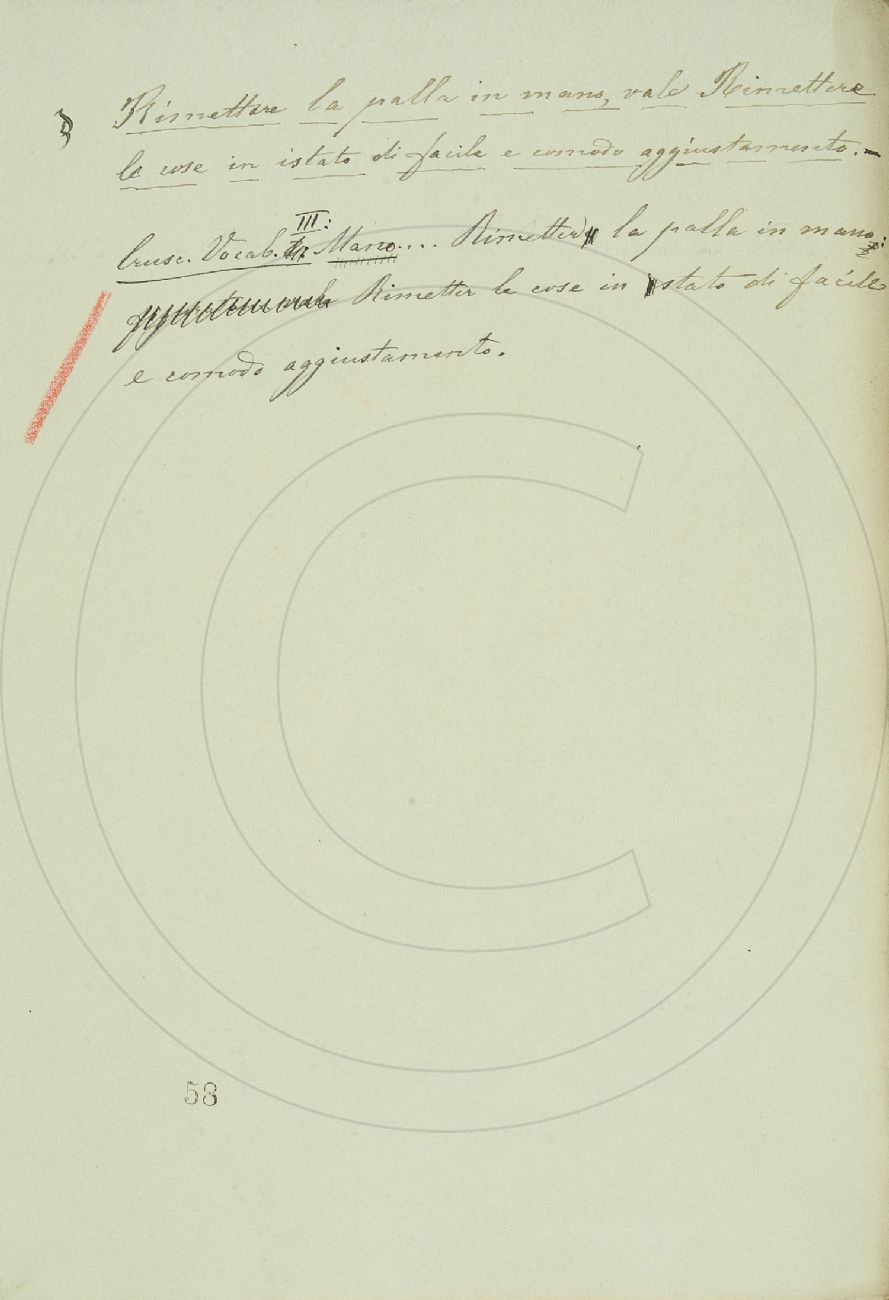 Rimettere la palla in mano, vale Rimettere
le cose in istato di facile e comodo aggiustamento. –
III:
Crusc. Vocab. Mano.... Rimetter la palla in mano:
Rimetter le cose in istato di facile
e comodo aggiustamento.
58